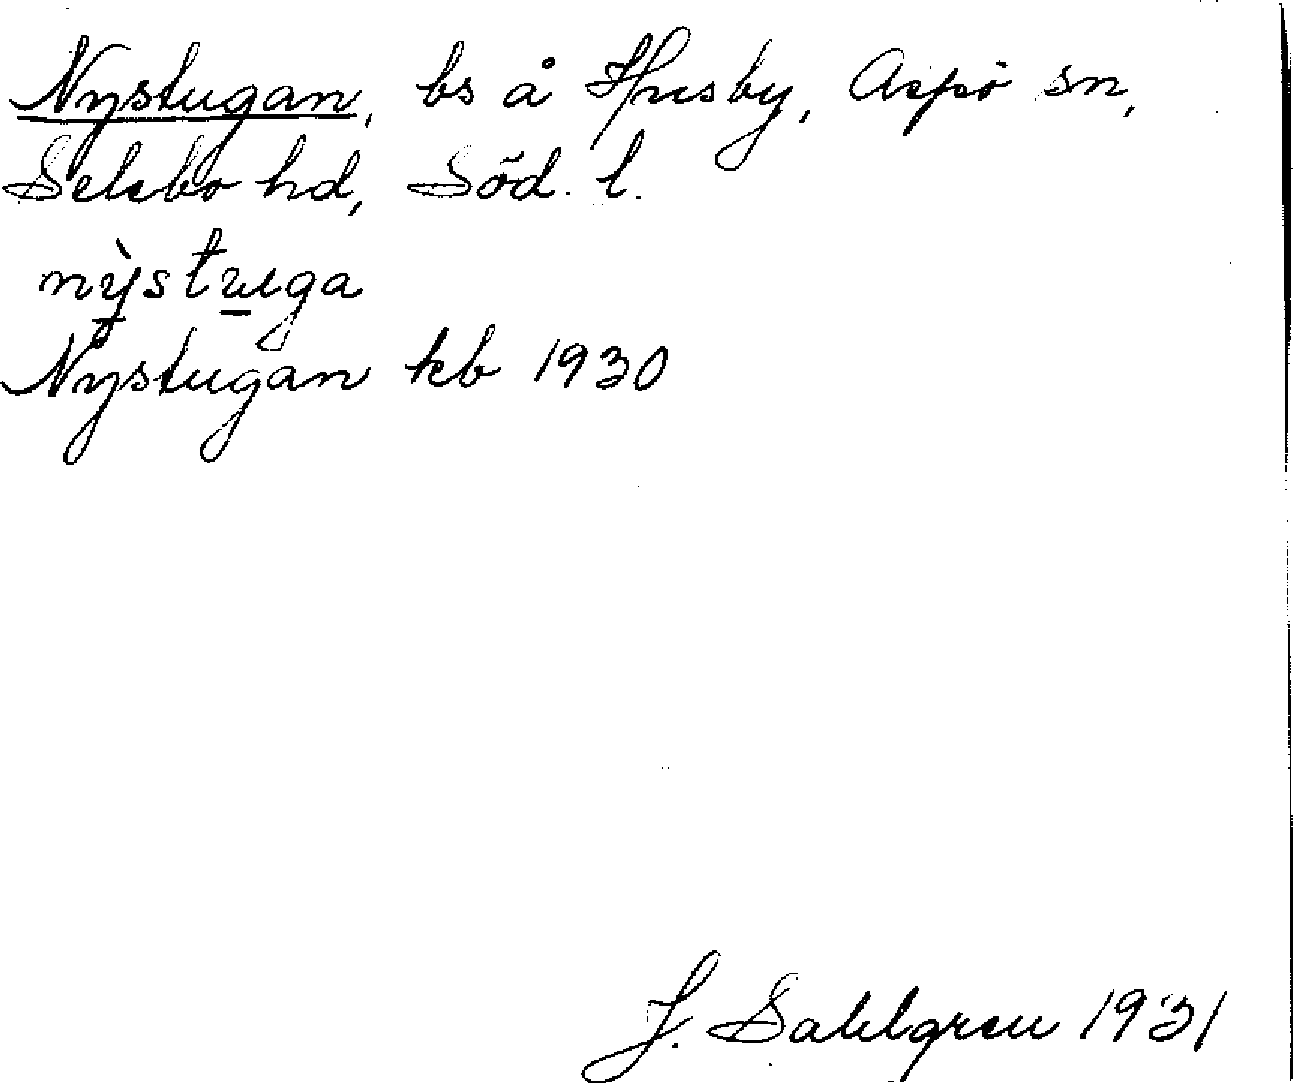 Nystugan, bs å Husby, Aspö sn,
Selebo hd, Söd. l.
nỳstuga
Nystugan kb 1930
J. Sahlgren 1931